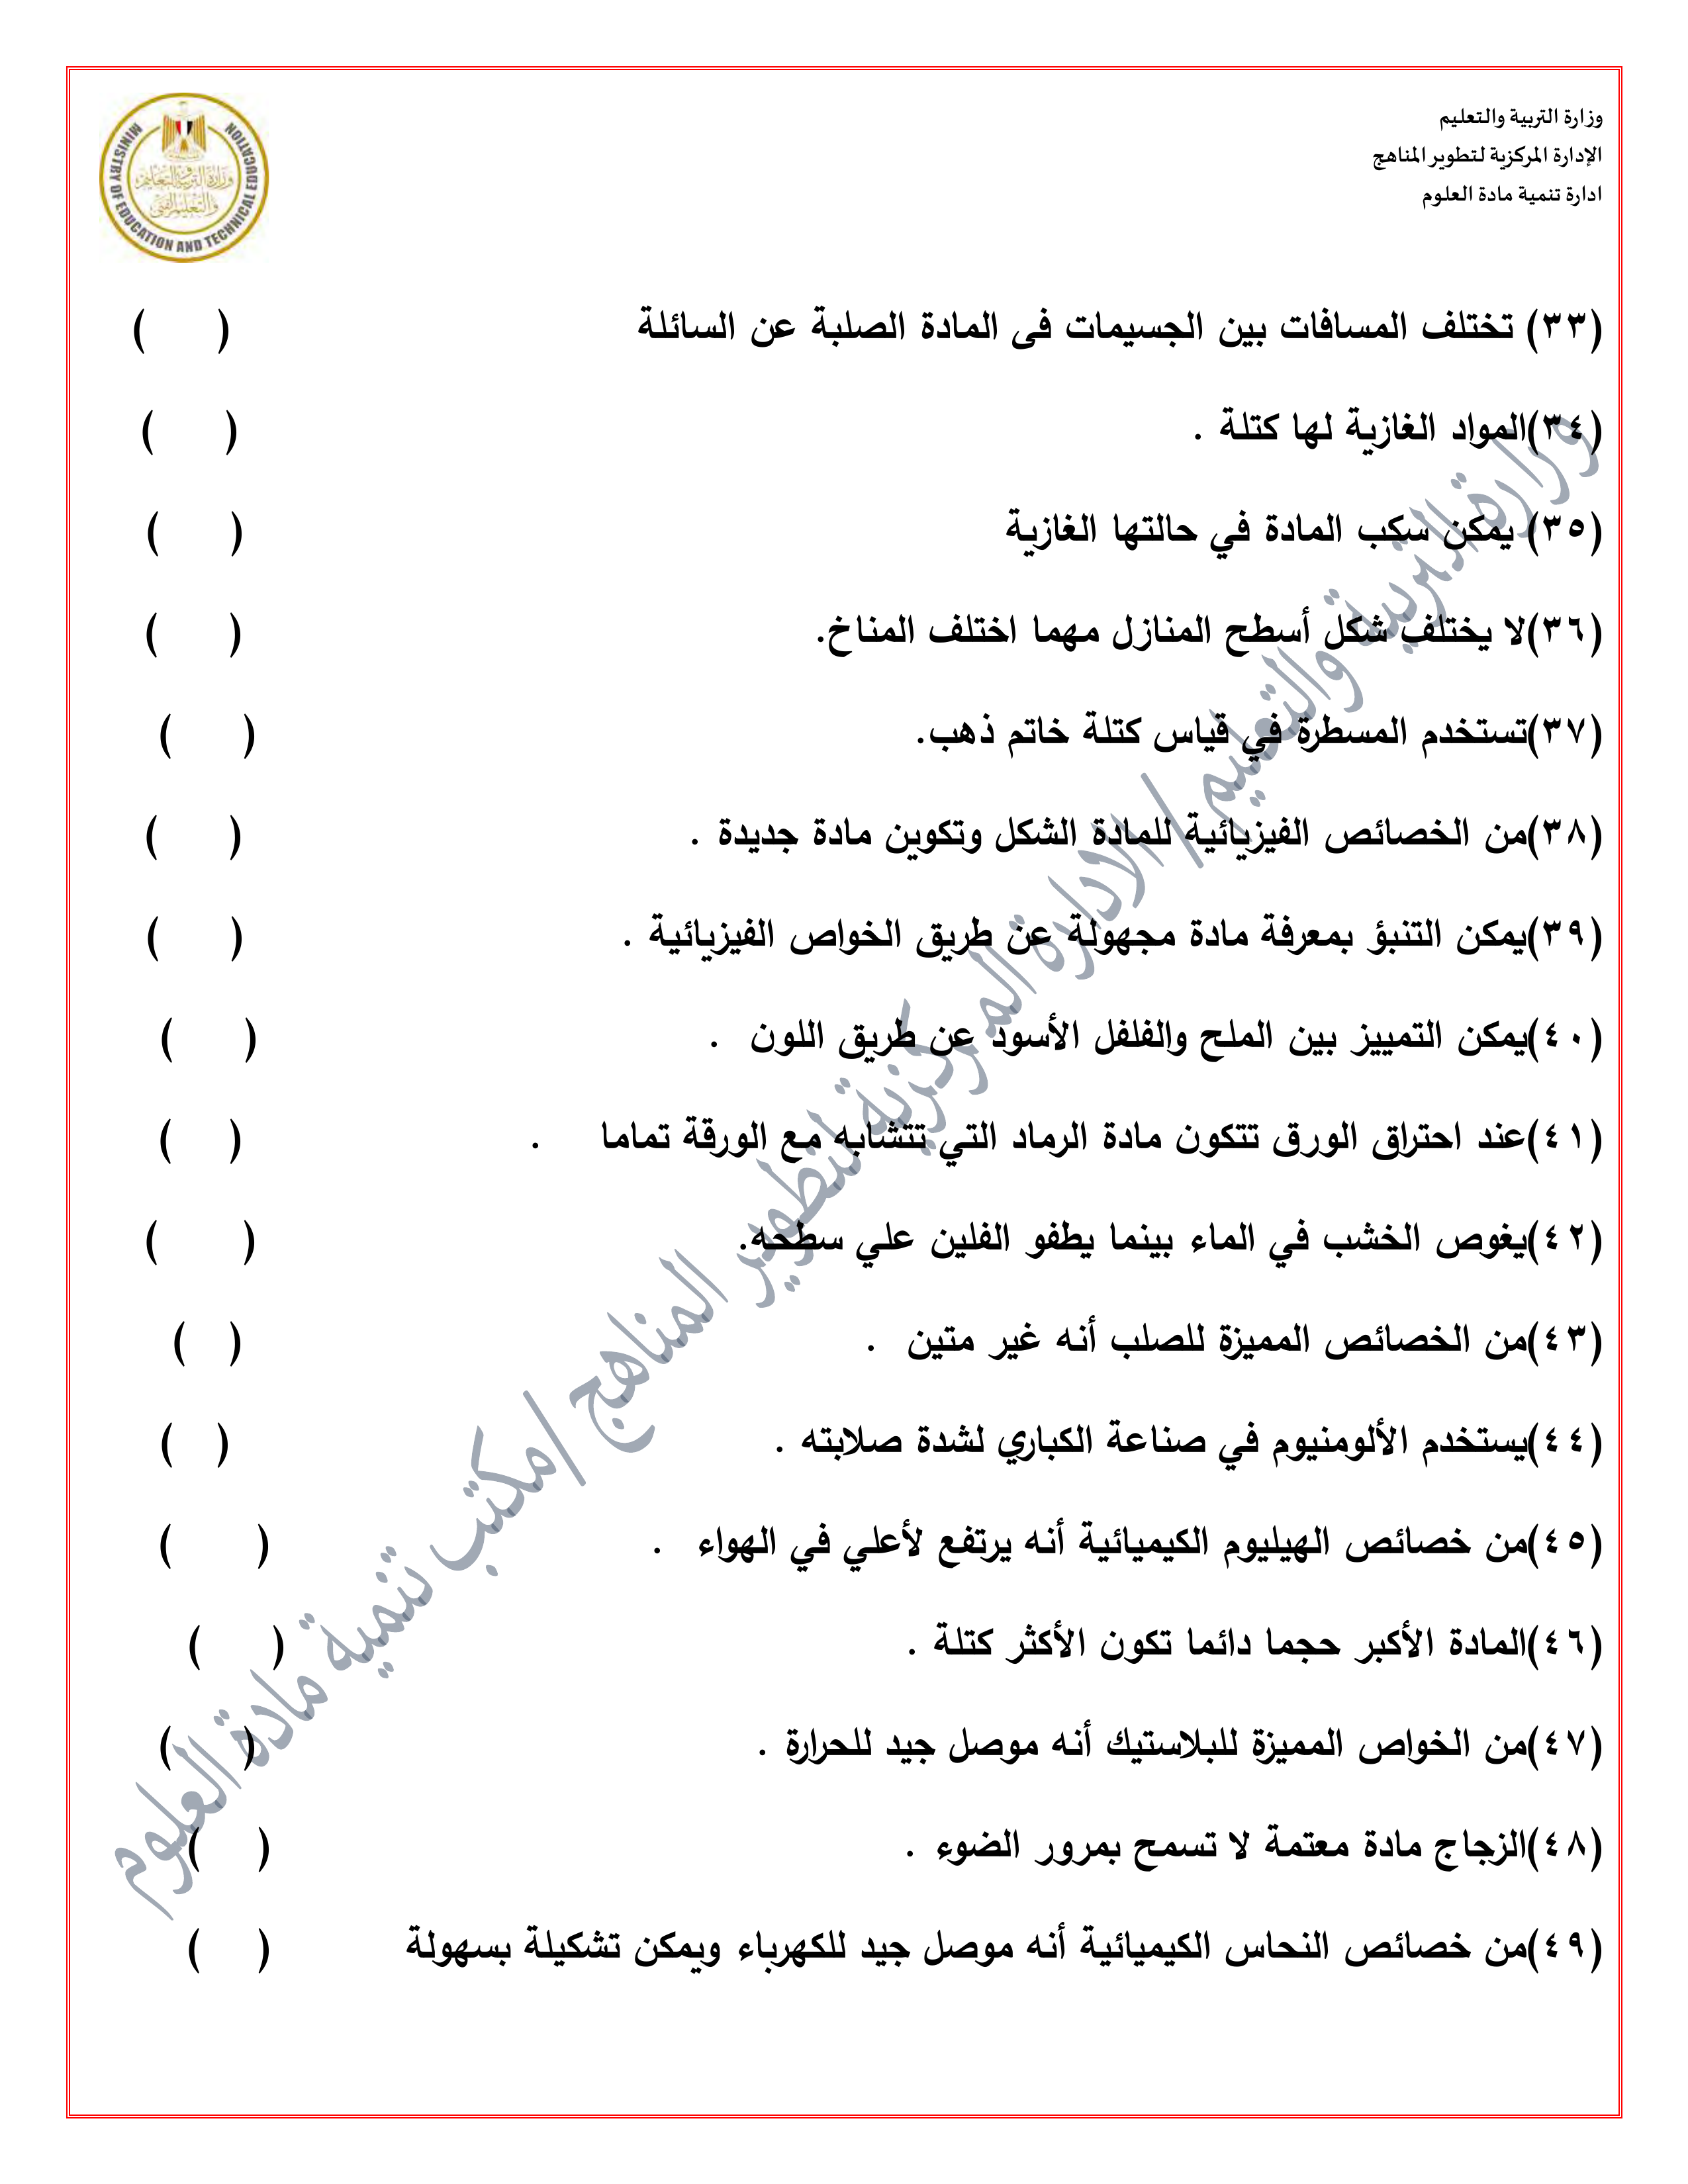 وزارة التربية والتعليم
الإدارة المركزية لتطوير المناهج
ادارة تنمية مادة العلوم
MINISTRY OF EDUCATION AND TECHNICAL EDUCATION
وزارة التربية والتعليم
والتعليم الفني
(٣٣) تختلف المسافات بين الجسيمات فى المادة الصلبة عن السائلة ( )
(٣٤)المواد الغازية لها كتلة . ( )
(٣٥) يمكن سكب المادة في حالتها الغازية ( )
(٣٦)لا يختلف شكل أسطح المنازل مهما اختلف المناخ. ( )
(٣٧)تستخدم المسطرة في قياس كتلة خاتم ذهب. ( )
(٣٨)من الخصائص الفيزيائية للمادة الشكل وتكوين مادة جديدة . ( )
(٣٩)يمكن التنبؤ بمعرفة مادة مجهولة عن طريق الخواص الفيزيائية . ( )
(٤٠)يمكن التمييز بين الملح والفلفل الأسود عن طريق اللون . ( )
(٤١)عند احتراق الورق تتكون مادة الرماد التي تتشابه مع الورقة تماما . ( )
(٤٢)يغوص الخشب في الماء بينما يطفو الفلين علي سطحه. ( )
(٤٣)من الخصائص المميزة للصلب أنه غير متين . ( )
(٤٤)يستخدم الألومنيوم في صناعة الكباري لشدة صلابته . ( )
(٤٥)من خصائص الهيليوم الكيميائية أنه يرتفع لأعلي في الهواء . ( )
(٤٦)المادة الأكبر حجما دائما تكون الأكثر كتلة . ( )
(٤٧)من الخواص المميزة للبلاستيك أنه موصل جيد للحرارة . ( )
(٤٨)الزجاج مادة معتمة لا تسمح بمرور الضوء . ( )
(٤٩)من خصائص النحاس الكيميائية أنه موصل جيد للكهرباء ويمكن تشكيلة بسهولة ( )
وزارة التربية والتعليم / الادارة المركزية لتطوير المناهج /مكتب تنمية مادة العلوم